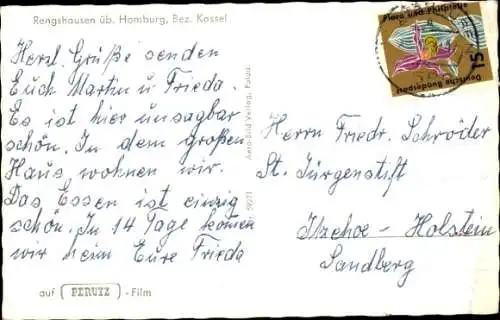 Rengshausen üb. Homburg, Bez. Kassel
Herzl. Grüße senden
Euch Martin u Frieda.
Es ist hier unsagbar
schön. In dem großen
Haus wohnen wir.
Das Essen ist einzig
schön. In 14 Tage kommen
wir heim Eure Frieda
auf PERUTZ - Film
Aero-Bild Verlag, Fulda
Deutsche Bundespost
15
Flora und Philatelie
Herrn Friedr. Schröder
St. Jürgenstift
Itzehoe - Holstein
Sandberg